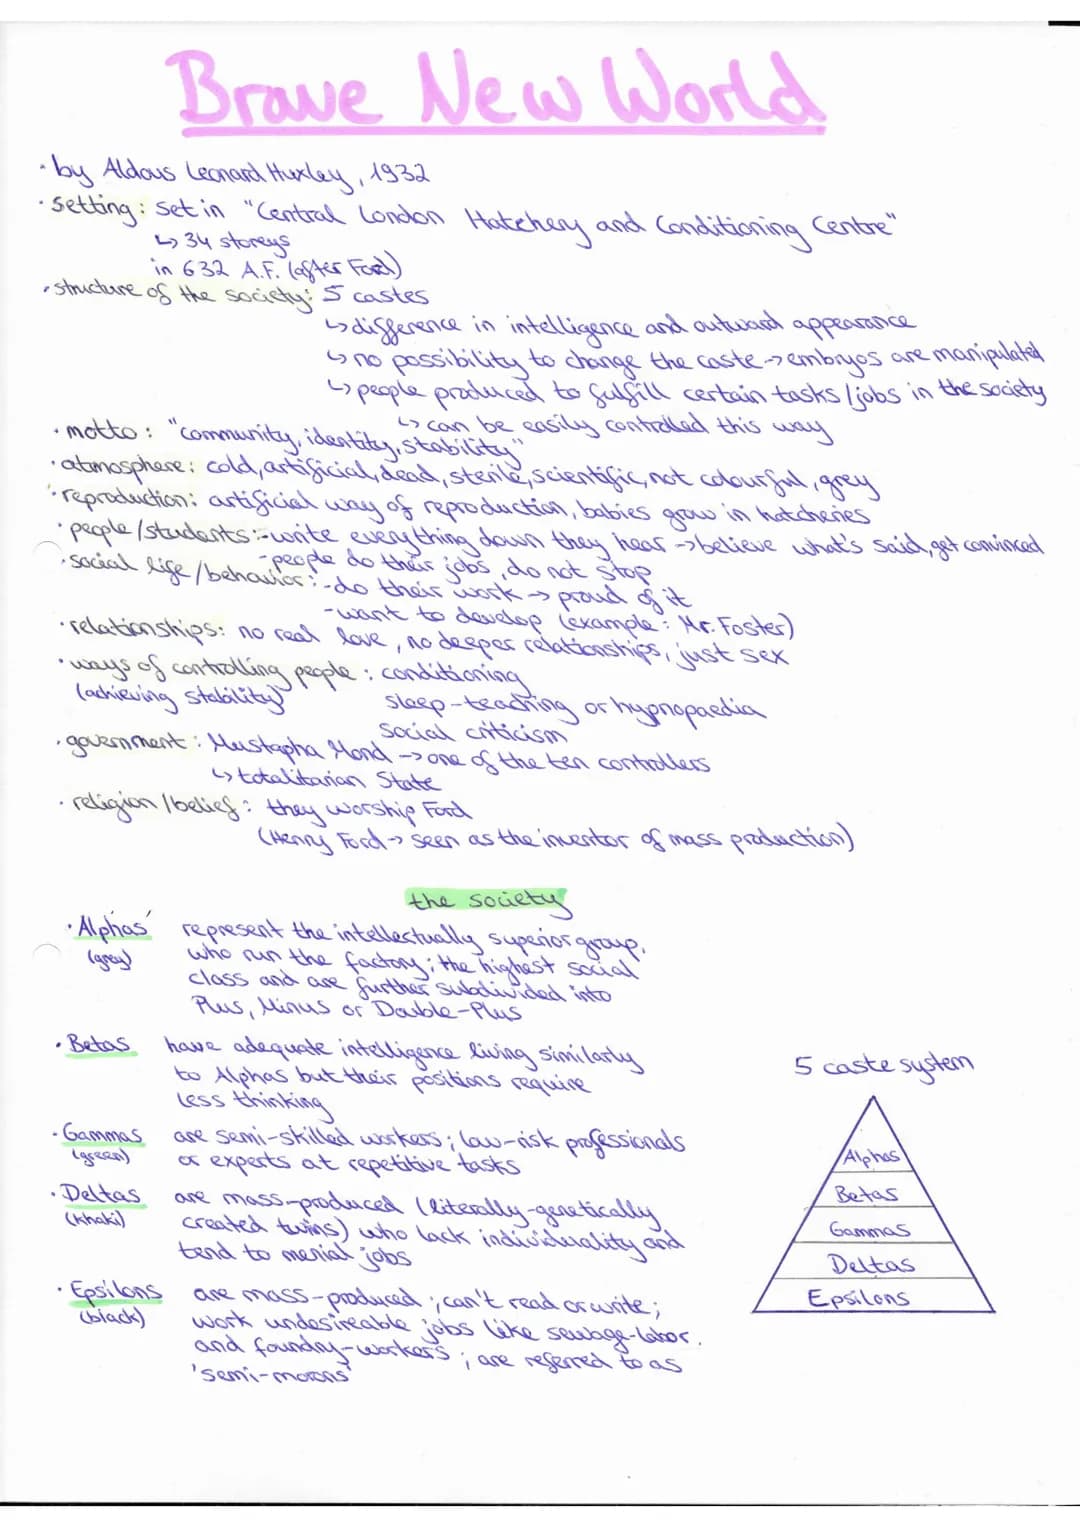 Brave New World
· by Aldous Leonard Huxley, 1932
· setting: set in "Central London Hatchery and Conditioning Centre"
↳ 34 storeys
in 632 A.F. (after Ford)
· structure of the society: 5 castes
↳ difference in intelligence and outward appearance
↳ no possibility to change the caste → embryos are manipulated
↳ people produced to fulfill certain tasks / jobs in the society
↳ can be easily controlled this way
· motto: "community, identity, stability"
· atmosphere: cold, artificial, dead, sterile, scientific, not colourful, grey
· reproduction: artificial way of reproduction, babies grow in hatcheries
· people / students: - write everything down they hear → believe what's said, get convinced
- people do their jobs, do not stop
· social life / behavior: - do their work → proud of it
- want to develop (example: Mr. Foster)
· relationships: no real love, no deeper relationships, just sex
· ways of controlling people: conditioning
(achieving stability) sleep-teaching or hypnopaedia
social criticism
· government: Mustapha Mond → one of the ten controllers
↳ totalitarian State
· religion / belief: they worship Ford
(Henry Ford → seen as the inventor of mass production)
the society
· Alphas represent the intellectually superior group,
(grey) who run the factory; the highest social
class and are further subdivided into
Plus, Minus or Double-Plus
· Betas have adequate intelligence living similarly
to Alphas but their positions require
less thinking
· Gammas are semi-skilled workers; low-risk professionals
(green) or experts at repetitive tasks
· Deltas are mass-produced (literally-genetically
(khaki) created twins) who lack individuality and
tend to menial jobs
· Epsilons are mass-produced; can't read or write;
(black) work undesireable jobs like sewage-labor.
and foundry-workers; are referred to as
'semi-morons'
5 caste system
Alphas
Betas
Gammas
Deltas
Epsilons